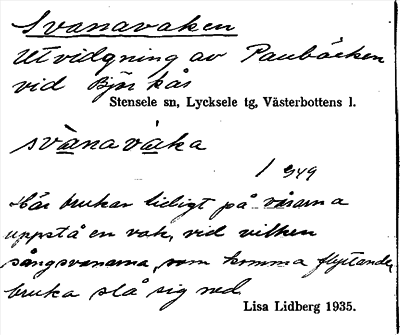 Svanavaken
Utvidgning av Paubäcken
vid Björkås
Stensele sn, Lycksele tg, Västerbottens l.
svànavàka
1 949
Här brukar tidigt på vårarna
uppstå en vak, vid vilken
sångsvanarna, som komma flyttande,
bruka slå sig ned.
Lisa Lidberg 1935.